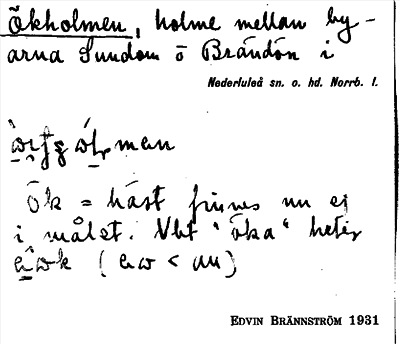 Ökholmen, holme mellan by-
arna Sundom o Brändön i
Nederluleå sn. o. hd. Norrb. l.
men
Ök = häst finnes nu ej
i målet. Vbt "öka" heter
( < au)
EDVIN BRÄNNSTRÖM 1931